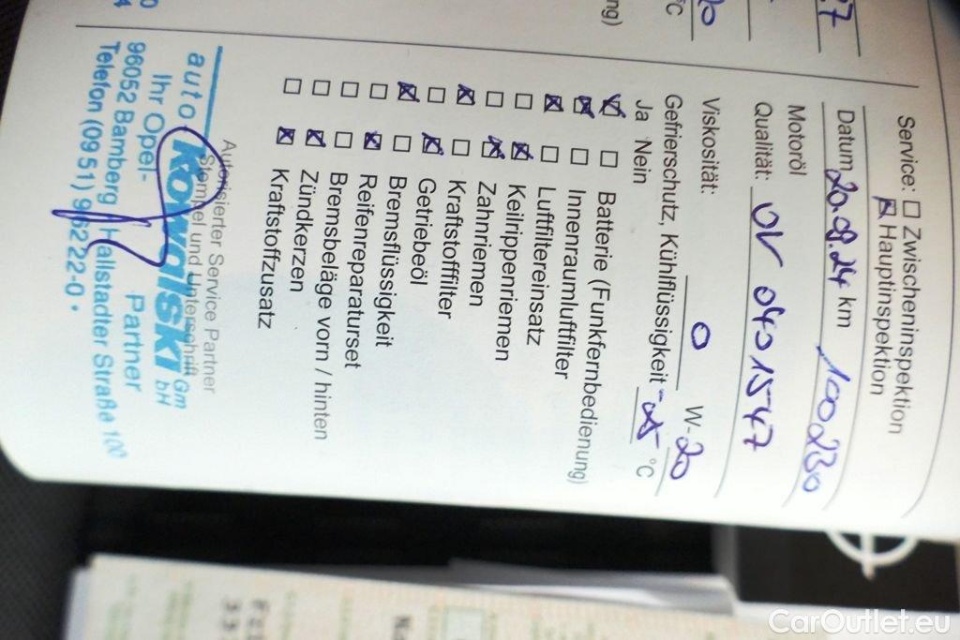 Service: ☐ Zwischeninspektion
☒ Hauptinspektion
Datum 20.09.24 km 100230
Motoröl
Qualität: OV 0401547
Viskosität: 0 W-20
Gefrierschutz, Kühlflüssigkeit -25 °C
Ja Nein
☒ ☐ Batterie (Funkfernbedienung)
☒ ☐ Innenraumluftfilter
☒ ☐ Luftfiltereinsatz
☐ ☒ Keilrippenriemen
☐ ☒ Zahnriemen
☒ ☐ Kraftstofffilter
☐ ☒ Getriebeöl
☒ ☐ Bremsflüssigkeit
☐ ☒ Reifenreparaturset
☐ ☐ Bremsbeläge vorn / hinten
☐ ☒ Zündkerzen
☐ ☒ Kraftstoffzusatz
Autorisierter Service Partner
Stempel und Unterschrift
auto kowalski GmbH
Ihr Opel-Partner
96052 Bamberg Hallstadter Straße 100
Telefon (0951) 96222-0
CarOutlet.eu